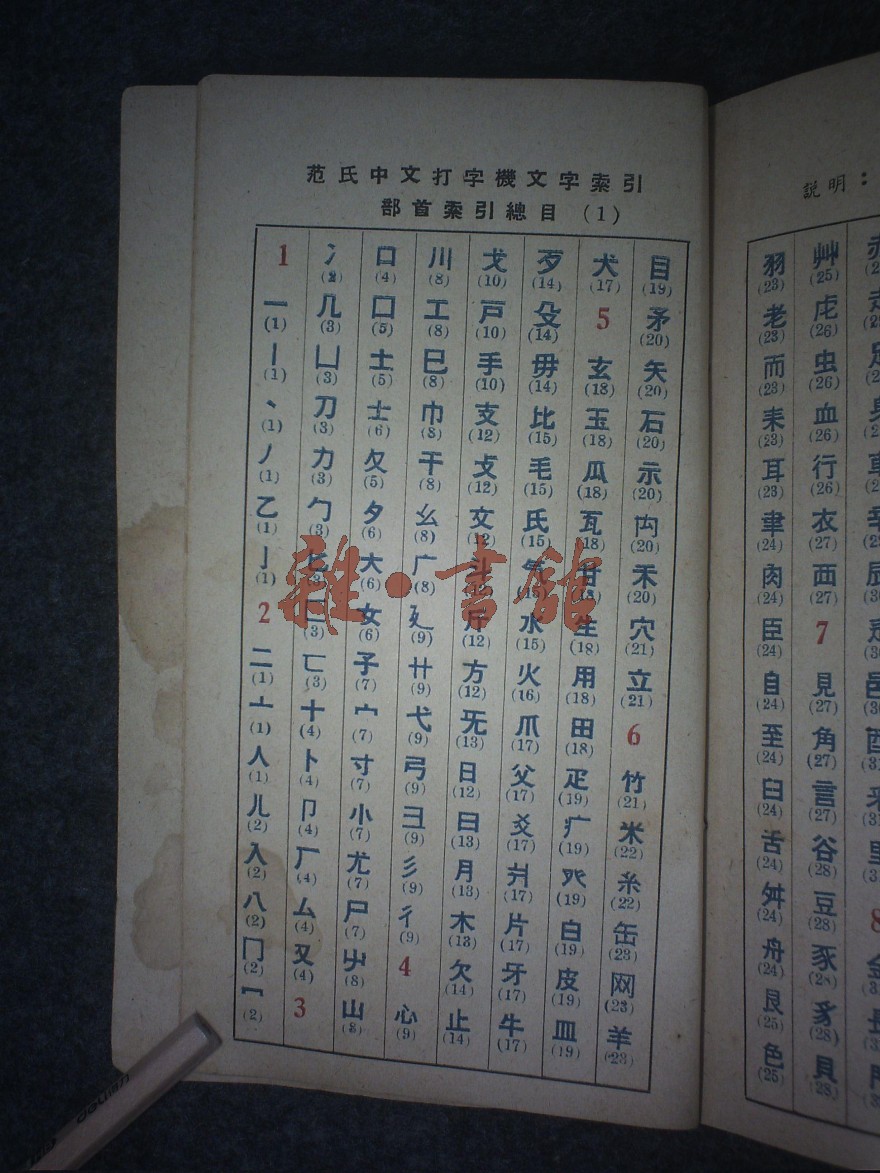 范氏中文打字機文字索引
部首索引總目 (1)
1 一(1) 丨(1) 丶(1) 丿(1) 乙(1) 亅(1) 2 二(1) 亠(1) 人(1) 儿(2) 入(2) 八(2) 冂(2) 冖(2)
冫(2) 几(3) 凵(3) 刀(3) 力(3) 勹(3) 匕(3) 匚(3) 匸(3) 十(4) 卜(4) 卩(4) 厂(4) 厶(4) 又(4) 3
口(4) 囗(5) 土(5) 士(6) 夂(5) 夕(6) 大(6) 女(6) 子(7) 宀(7) 寸(7) 小(7) 尢(7) 尸(7) 屮(8) 山(8)
川(8) 工(8) 巳(8) 巾(8) 干(8) 幺(8) 广(8) 廴(9) 廾(9) 弋(9) 弓(9) 彐(9) 彡(9) 彳(9) 4 心(9)
戈(10) 戸(10) 手(10) 支(12) 攴(12) 文(12) 斗(12) 斤(12) 方(12) 无(13) 日(12) 曰(13) 月(13) 木(13) 欠(14) 止(14)
歹(14) 殳(14) 毋(14) 比(15) 毛(15) 氏(15) 气(15) 水(15) 火(16) 爪(17) 父(17) 爻(17) 爿(17) 片(17) 牙(17) 牛(17)
犬(17) 5 玄(18) 玉(18) 瓜(18) 瓦(18) 甘(18) 生(18) 用(18) 田(18) 疋(19) 疒(19) 癶(19) 白(19) 皮(19) 皿(19)
目(19) 矛(20) 矢(20) 石(20) 示(20) 禸(20) 禾(20) 穴(21) 立(21) 6 竹(21) 米(22) 糸(22) 缶(23) 网(23) 羊(23)
説明：
羽(23) 老(23) 而(23) 耒(23) 耳(23) 聿(24) 肉(24) 臣(24) 自(24) 至(24) 臼(24) 舌(24) 舛(24) 舟(24) 艮(25) 色(25)
艸(25) 虍(26) 虫(26) 血(26) 行(26) 衣(27) 西(27) 7 見(27) 角(27) 言(27) 谷(28) 豆(28) 豕(28) 豸(28) 貝(28)
雜·書館